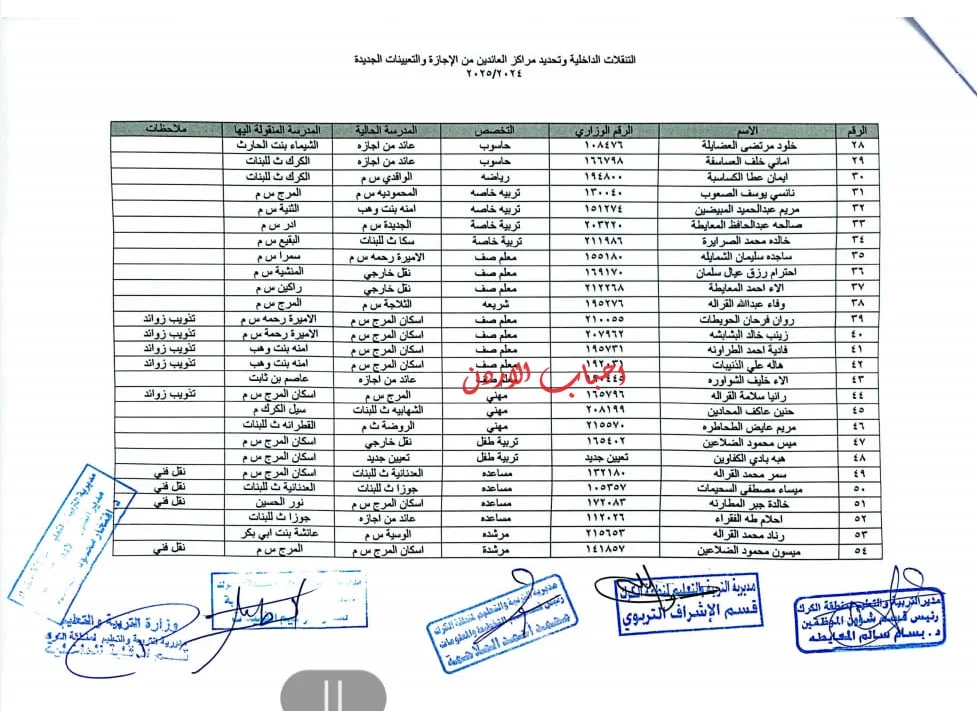 التنقلات الداخلية وتحديد مراكز العائدين من الإجازة والتعيينات الجديدة
٢٠٢٥/٢٠٢٤
الرقم الاسم الرقم الوزاري التخصص المدرسة الحالية المدرسة المنقولة اليها ملاحظات
٢٨ خلود مرتضى العضايلة ١٠٨٤٧٦ حاسوب عائد من اجازه الشيماء بنت الحارث
٢٩ اماني خلف العساسفة ١٦٦٧٩٨ حاسوب عائد من اجازه الكرك ث للبنات
٣٠ ايمان عطا الكساسبة ١٩٤٨٠٠ رياضه الواقدي س م الكرك ث للبنات
٣١ نانسي يوسف الصعوب ١٣٠٠٤٠ تربيه خاصه المحموديه س م المرج س م
٣٢ مريم عبدالحميد المبيضين ١٥١٢٧٤ تربيه خاصه امنه بنت وهب الثنية س م
٣٣ صالحه عبدالحافظ المعايطة ٢٠٣٢٢٠ تربية خاصة الجديدة س م ادر س م
٣٤ خالده محمد الصرايرة ٢١١٩٨٦ تربية خاصة سكا ث للبنات البقيع س م
٣٥ ساجده سليمان الشمايله ١٥٥١٨٠ معلم صف الاميرة رحمه س م سمرا س م
٣٦ احترام رزق عيال سلمان ١٦٩١٧٠ معلم صف نقل خارجي المنشية س م
٣٧ الاء احمد المعايطة ٢١٢٢٦٨ معلم صف نقل خارجي راكين س م
٣٨ وفاء عبدالله القراله ١٩٥٢٧٦ شريعه الثلاجة س م المرج س م
٣٩ روان فرحان الحويطات ٢١٠٠٥٥ معلم صف اسكان المرج س م الاميرة رحمه س م تذويب زوائد
٤٠ زينب خالد البشابشه ٢٠٧٩٦٢ معلم صف اسكان المرج س م الاميرة رحمة س م تذويب زوائد
٤١ فادية احمد الطراونه ١٩٥٧٣١ معلم صف اسكان المرج س م امنه بنت وهب تذويب زوائد
٤٢ هاله علي الذنيبات معلم صف اسكان المرج س م امنه بنت وهب تذويب زوائد
٤٣ الاء خليف الشواوره عائد من اجازة عاصم بن ثابت
احباب الاردن
٤٤ رانيا سلامة القراله ١٦٥٧٩٦ مهني المرج س م اسكان المرج س م تذويب زوائد
٤٥ حنين عاكف المحادين ٢٠٨١٩٩ مهني الشهابيه ث للبنات سيل الكرك م
٤٦ مريم عايض الطحاطره ٢١٥٥٧٠ مهني الروضة ث م القطرانه ث للبنات
٤٧ ميس محمود الضلاعين ١٦٥٤٠٢ تربية طفل نقل خارجي اسكان المرج س م
٤٨ هبه بادي الكفاوين تعيين جديد تربية طفل تعيين جديد اسكان المرج س م
٤٩ سمر محمد القراله ١٣٢١٨٠ مساعده العدنانية ث للبنات اسكان المرج س م نقل فني
٥٠ ميساء مصطفى السحيمات ١٠٥٣٥٧ مساعده جوزا ث للبنات العدنانية ث للبنات نقل فني
٥١ خالدة جبر المطارنه ١٧٢٠٨٣ مساعده اسكان المرج س م نور الحسين نقل فني
٥٢ احلام طه الفقراء ١١٢٠٢٦ مساعده عائد من اجازه جوزا ث للبنات
٥٣ رناد محمد القراله ٢١٥٦٥٣ مرشده الوسية س م عائشة بنت ابي بكر
٥٤ ميسون محمود الضلاعين ١٤١٨٥٧ مرشدة اسكان المرج س م المرج س م نقل فني
مدير التربية والتعليم لمنطقة الكرك
رئيس قسم شؤون الموظفين
د. بسام سالم المعايطه
مديرية التربية والتعليم لمنطقة الكرك
قسم الإشراف التربوي
مديرية التربية والتعليم لمنطقة الكرك
رئيس قسم التخطيط والمعلومات
وزارة التربية والتعليم
مديرية التربية والتعليم لمنطقة الكرك